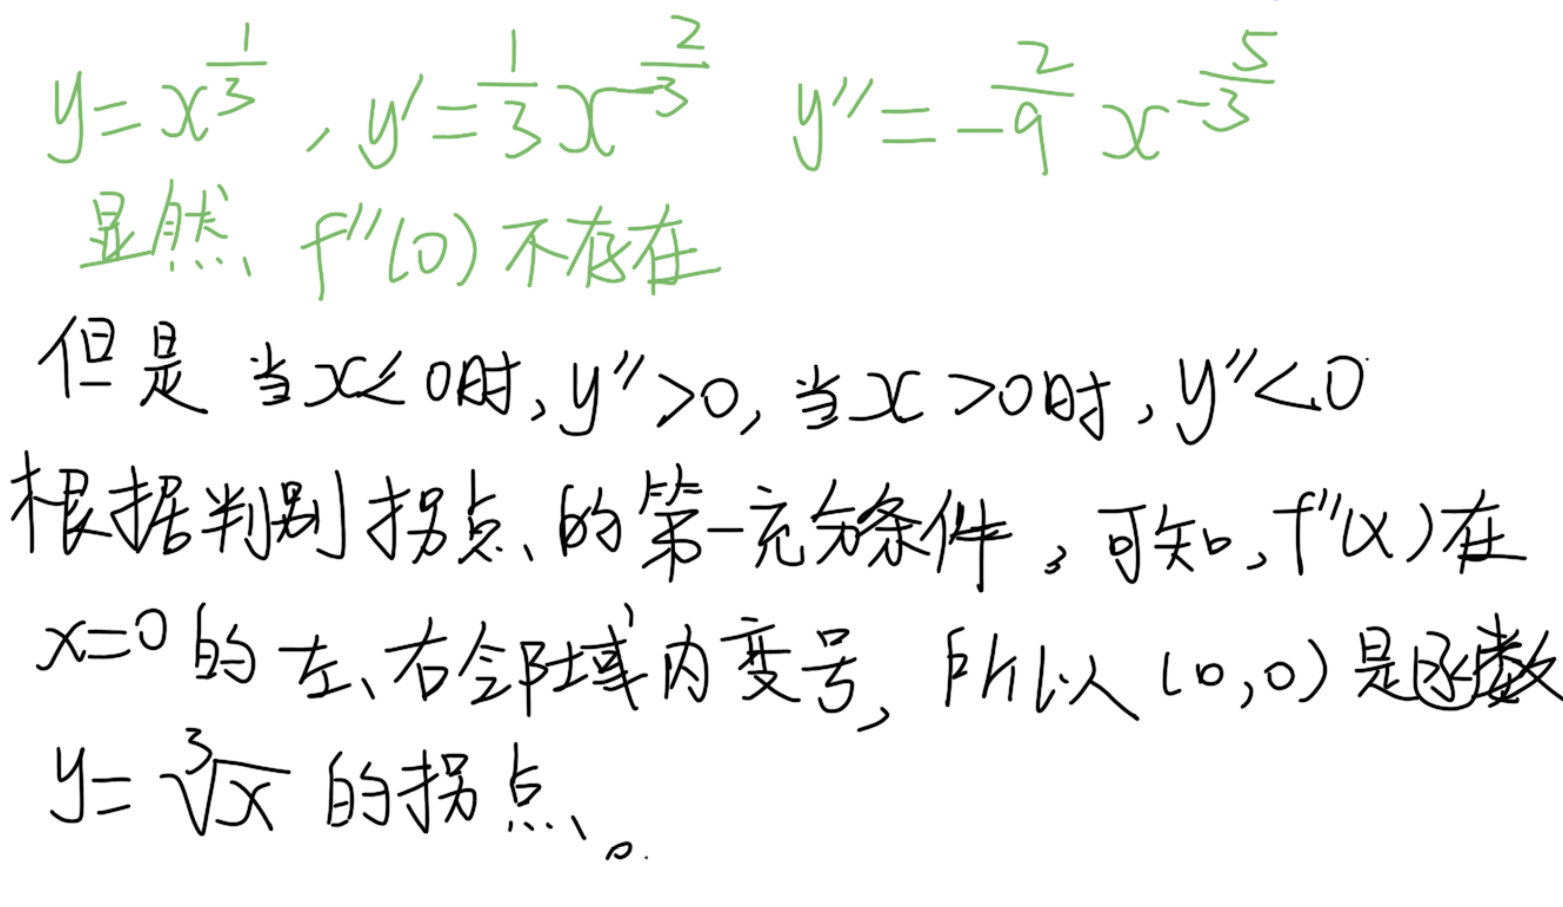 y=x^{\frac{1}{3}}, y'=\frac{1}{3}x^{-\frac{2}{3}} y''=-\frac{2}{9}x^{-\frac{5}{3}}
显然 f''(0)不存在
但是 当x<0时,y''>0,当x>0时,y''<0
根据判别拐点的第一充分条件,可知,f''(x)在
x=0的左、右邻域内变号,所以(0,0)是函数
y=\sqrt[3]{x} 的拐点。